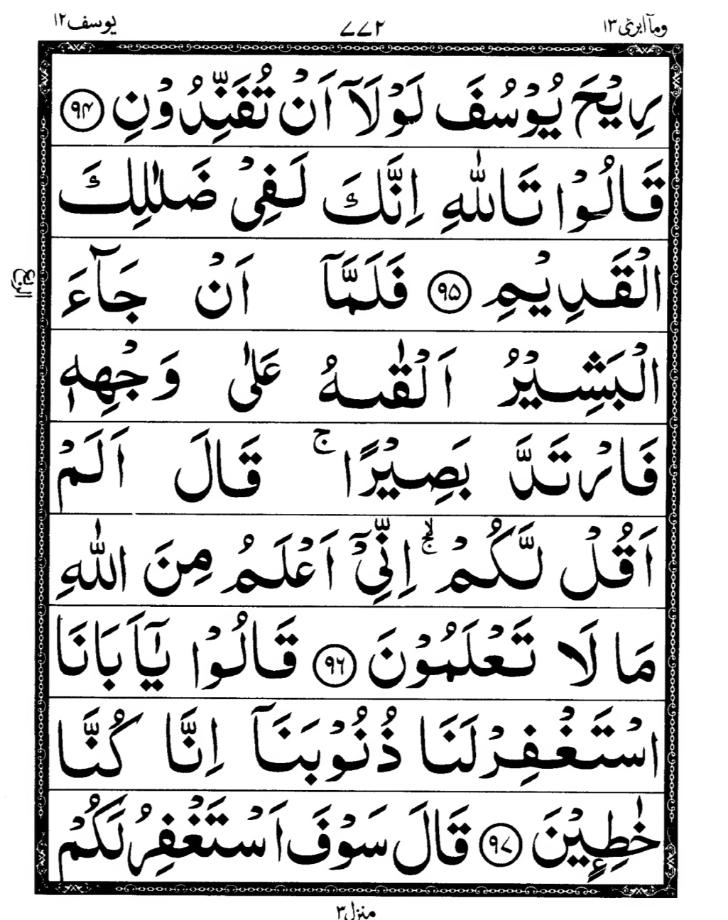 وما ابرئ ١٣ ٧٧٢ يوسف ١٢
رِيْحَ يُوْسُفَ لَوْلَاۤ اَنْ تُفَنِّدُوْنِ ﴿۹۴﴾
قَالُوْا تَاللّٰهِ اِنَّكَ لَفِيْ ضَلٰلِكَ
الْقَدِيْمِ ﴿۹۵﴾ فَلَمَّاۤ اَنْ جَآءَ
الْبَشِيْرُ اَلْقٰىهُ عَلٰى وَجْهِهٖ
فَارْتَدَّ بَصِيْرًا ۚ قَالَ اَلَمْ
اَقُلْ لَّكُمْ ۙۚ اِنِّيْۤ اَعْلَمُ مِنَ اللّٰهِ
مَا لَا تَعْلَمُوْنَ ﴿۹۶﴾ قَالُوْا يٰۤاَبَانَا
اسْتَغْفِرْ لَنَا ذُنُوْبَنَاۤ اِنَّا كُنَّا
خٰطِـِٕيْنَ ﴿۹۷﴾ قَالَ سَوْفَ اَسْتَغْفِرُ لَكُمْ
الربع
منزل ٣